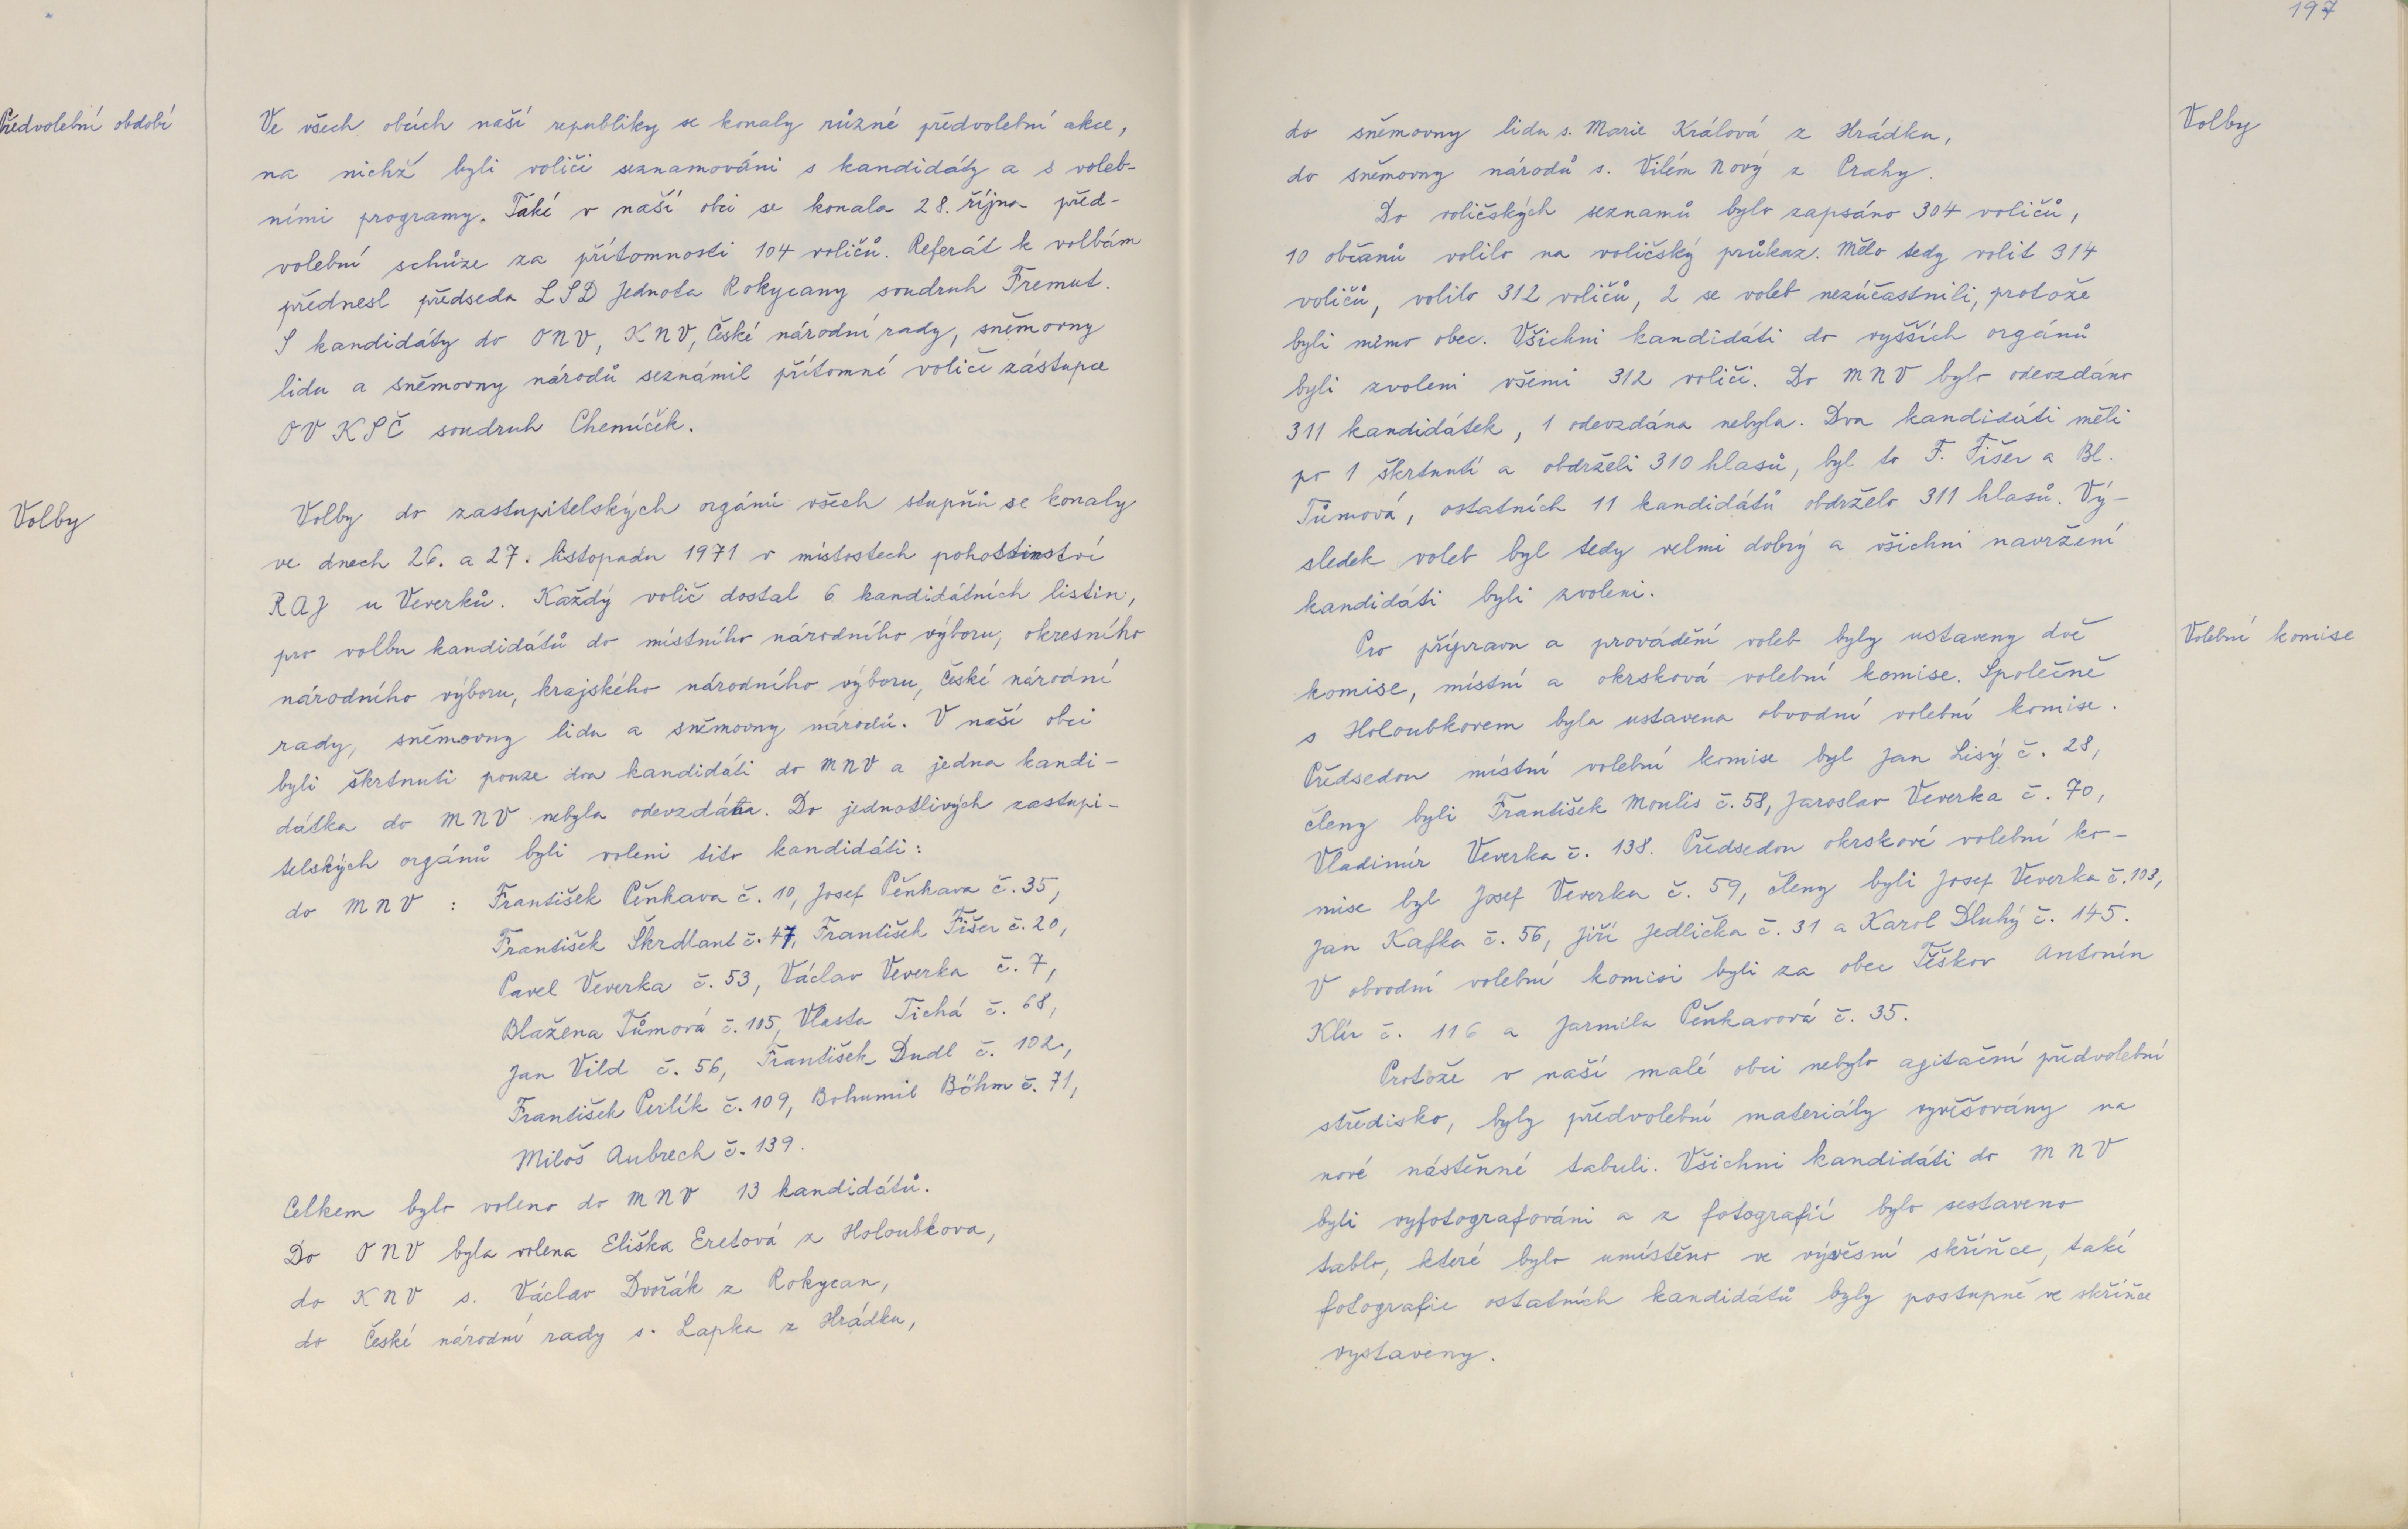 Předvolební období
Ve všech obcích naší republiky se konaly různé předvolební akce,
na nichž byli voliči seznamováni s kandidáty a s voleb-
ními programy. Také v naší obci se konala 28. října před-
volební schůze za přítomnosti 104 voličů. Referát k volbám
přednesl předseda LSD Jednota Rokycany soudruh Fremut.
S kandidáty do ONV, KNV, České národní rady, sněmovny
lidu a sněmovny národů seznámil přítomné voliče zástupce
OV KSČ soudruh Chemíček.
Volby
Volby do zastupitelských orgánů všech stupňů se konaly
ve dnech 26. a 27. listopadu 1971 v místostech pohostinství
RAJ u Veverků. Každý volič dostal 6 kandidátních listin,
pro volbu kandidátů do místního národního výboru, okresního
národního výboru, krajského národního výboru, České národní
rady, sněmovny lidu a sněmovny národů. V naší obci
byli škrtnuti pouze dva kandidáti do MNV a jedna kandi-
dátka do MNV nebyla odevzdána. Do jednotlivých zastupi-
telských orgánů byli voleni tito kandidáti:
do MNV : František Pěnkava č. 10, Josef Pěnkava č. 35,
František Škrdlant č. 47, František Fišer č. 20,
Pavel Veverka č. 53, Václav Veverka č. 7,
Blažena Tůmová č. 105, Vlasta Tichá č. 68,
Jan Vild č. 56, František Dudl č. 102,
František Perlík č. 109, Bohumil Böhm č. 71,
Miloš Aubrech č. 139.
Celkem bylo voleno do MNV 13 kandidátů.
Do ONV byla volena Eliška Eretová z Holoubkova,
do KNV s. Václav Dvořák z Rokycan,
do České národní rady s. Lapka z Hrádku,
197
Volby
do sněmovny lidu s. Marie Králová z Hrádku,
do sněmovny národů s. Vilém Nový z Prahy.
Do voličských seznamů bylo zapsáno 304 voličů,
10 občanů volilo na voličský průkaz. Mělo tedy volit 314
voličů, volilo 312 voličů, 2 se voleb nezúčastnili, protože
byli mimo obec. Všichni kandidáti do vyšších orgánů
byli zvoleni všemi 312 voliči. Do MNV bylo odevzdáno
311 kandidátek, 1 odevzdána nebyla. Dva kandidáti měli
po 1 škrtnutí a obdrželi 310 hlasů, byl to F. Fišer a Bl.
Tůmová, ostatních 11 kandidátů obdrželo 311 hlasů. Vý-
sledek voleb byl tedy velmi dobrý a všichni navržení
kandidáti byli zvoleni.
Volební komise
Pro přípravu a provádění voleb byly ustaveny dvě
komise, místní a okrsková volební komise. Společně
s Holoubkovem byla ustavena obvodní volební komise.
Předsedou místní volební komise byl Jan Lisý č. 28,
členy byli František Moulis č. 58, Jaroslav Veverka č. 70,
Vladimír Veverka č. 138. Předsedou okrskové volební ko-
mise byl Josef Veverka č. 59, členy byli Josef Veverka č. 103,
Jan Kafka č. 56, Jiří Jedlička č. 31 a Karol Dluhý č. 145.
V obvodní volební komisi byli za obec Těškov Antonín
Klír č. 116 a Jarmila Pěnkavová č. 35.
Protože v naší malé obci nebylo agitační předvolební
středisko, byly předvolební materiály vyvěšovány na
nové nástěnné tabuli. Všichni kandidáti do MNV
byli vyfotografováni a z fotografií bylo sestaveno
tablo, které bylo umístěno ve vývěsní skříňce, také
fotografie ostatních kandidátů byly postupně ve skříňce
vystaveny.